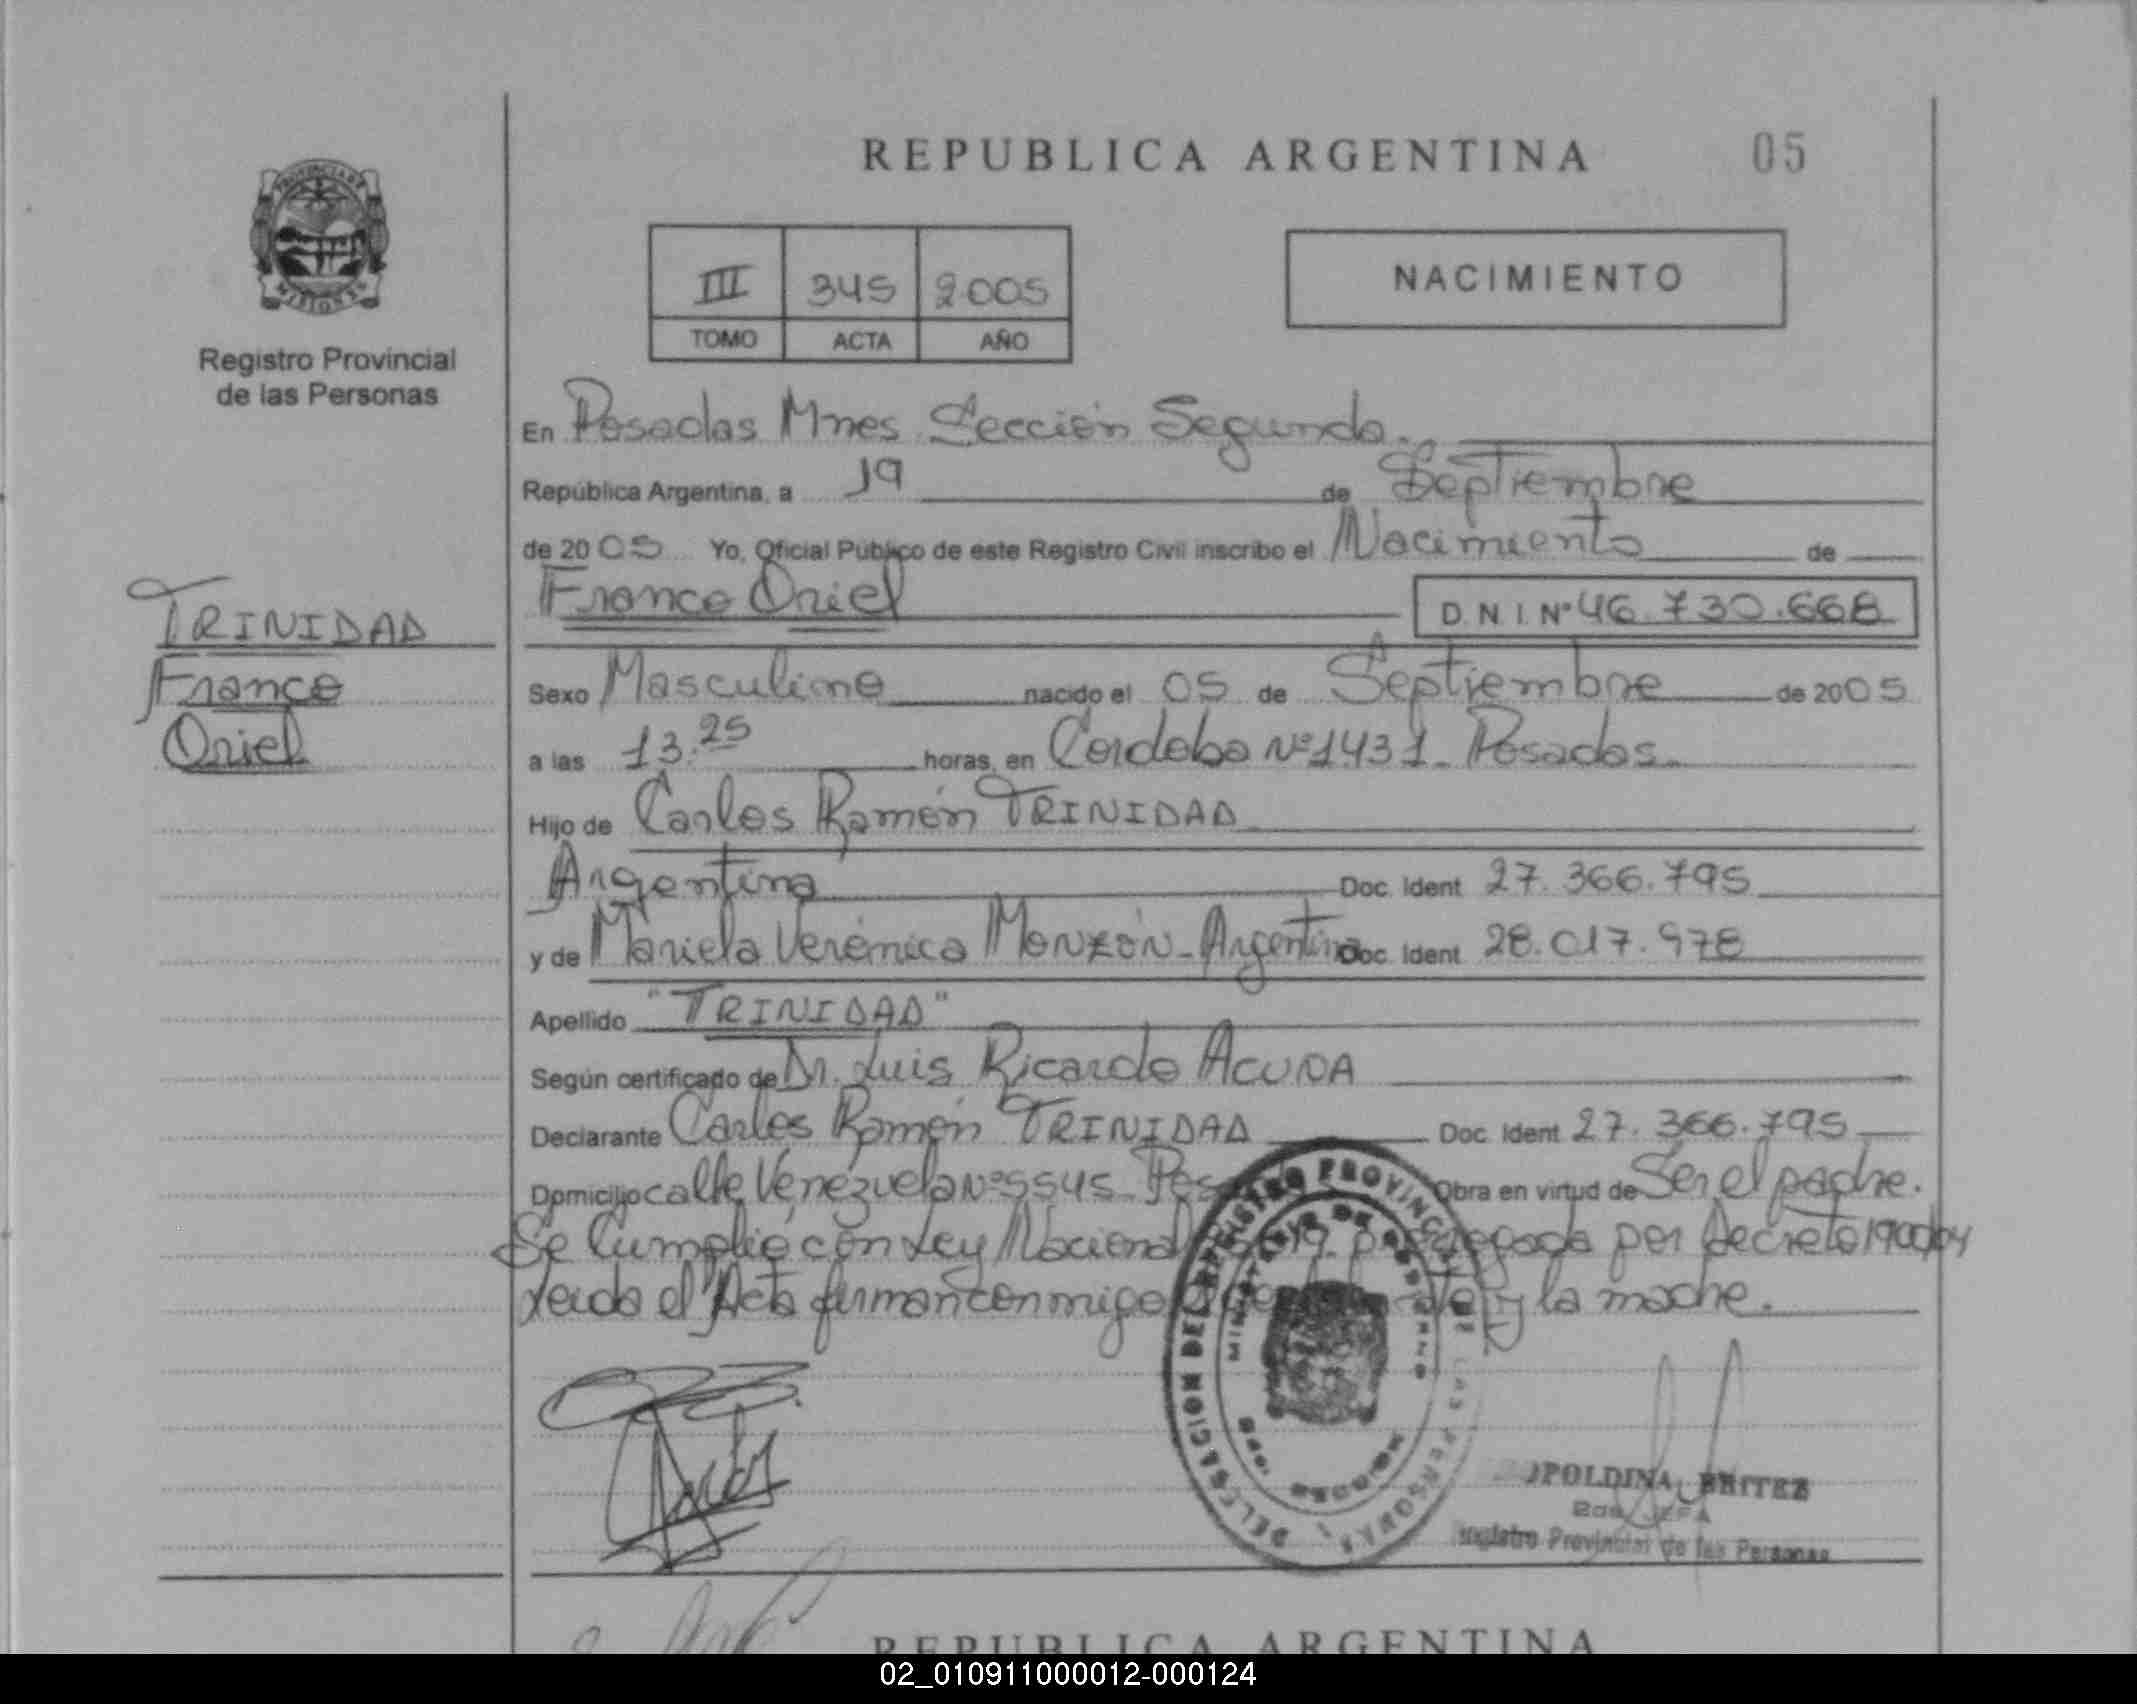 REPUBLICA ARGENTINA 05
PROVINCIA DE
MISIONES
Registro Provincial
de las Personas
III 345 2005
TOMO ACTA AÑO
NACIMIENTO
En Posadas Mnes Sección Segunda.
República Argentina, a 19 de Septiembre
de 2005 Yo, Oficial Publico de este Registro Civil inscribo el Nacimiento de
Franco Oriel D.N.I. Nº 46.730.668
TRINIDAD
Franco
Oriel
Sexo Masculino nacido el 05 de Septiembre de 2005
a las 13.25 horas, en Cordoba Nº 1431 - Posadas.
Hijo de Carlos Ramón TRINIDAD
Argentina Doc. Ident 27.366.795
y de Mariela Verónica MONZÓN - Argentina Doc. Ident 28.017.978
Apellido "TRINIDAD"
Según certificado de Dr. Luis Ricardo ACUÑA
Declarante Carlos Ramón TRINIDAD Doc. Ident 27.366.795
Domicilio calle Venezuela Nº 5545 - Obra en virtud de Ser el padre.
Se Cumplió con Ley Nacional por Decreto 1900/04
Leida el Acta firman conmigo y la madre.
DELEGACION DEL REGISTRO PROVINCIAL DE LAS PERSONAS
MINISTERIO DE GOBIERNO
POSADAS MISIONES
OPOLDINA BRITEZ
JEFA
Registro Provincial de las Personas
REPUBLICA ARGENTINA
02_010911000012-000124